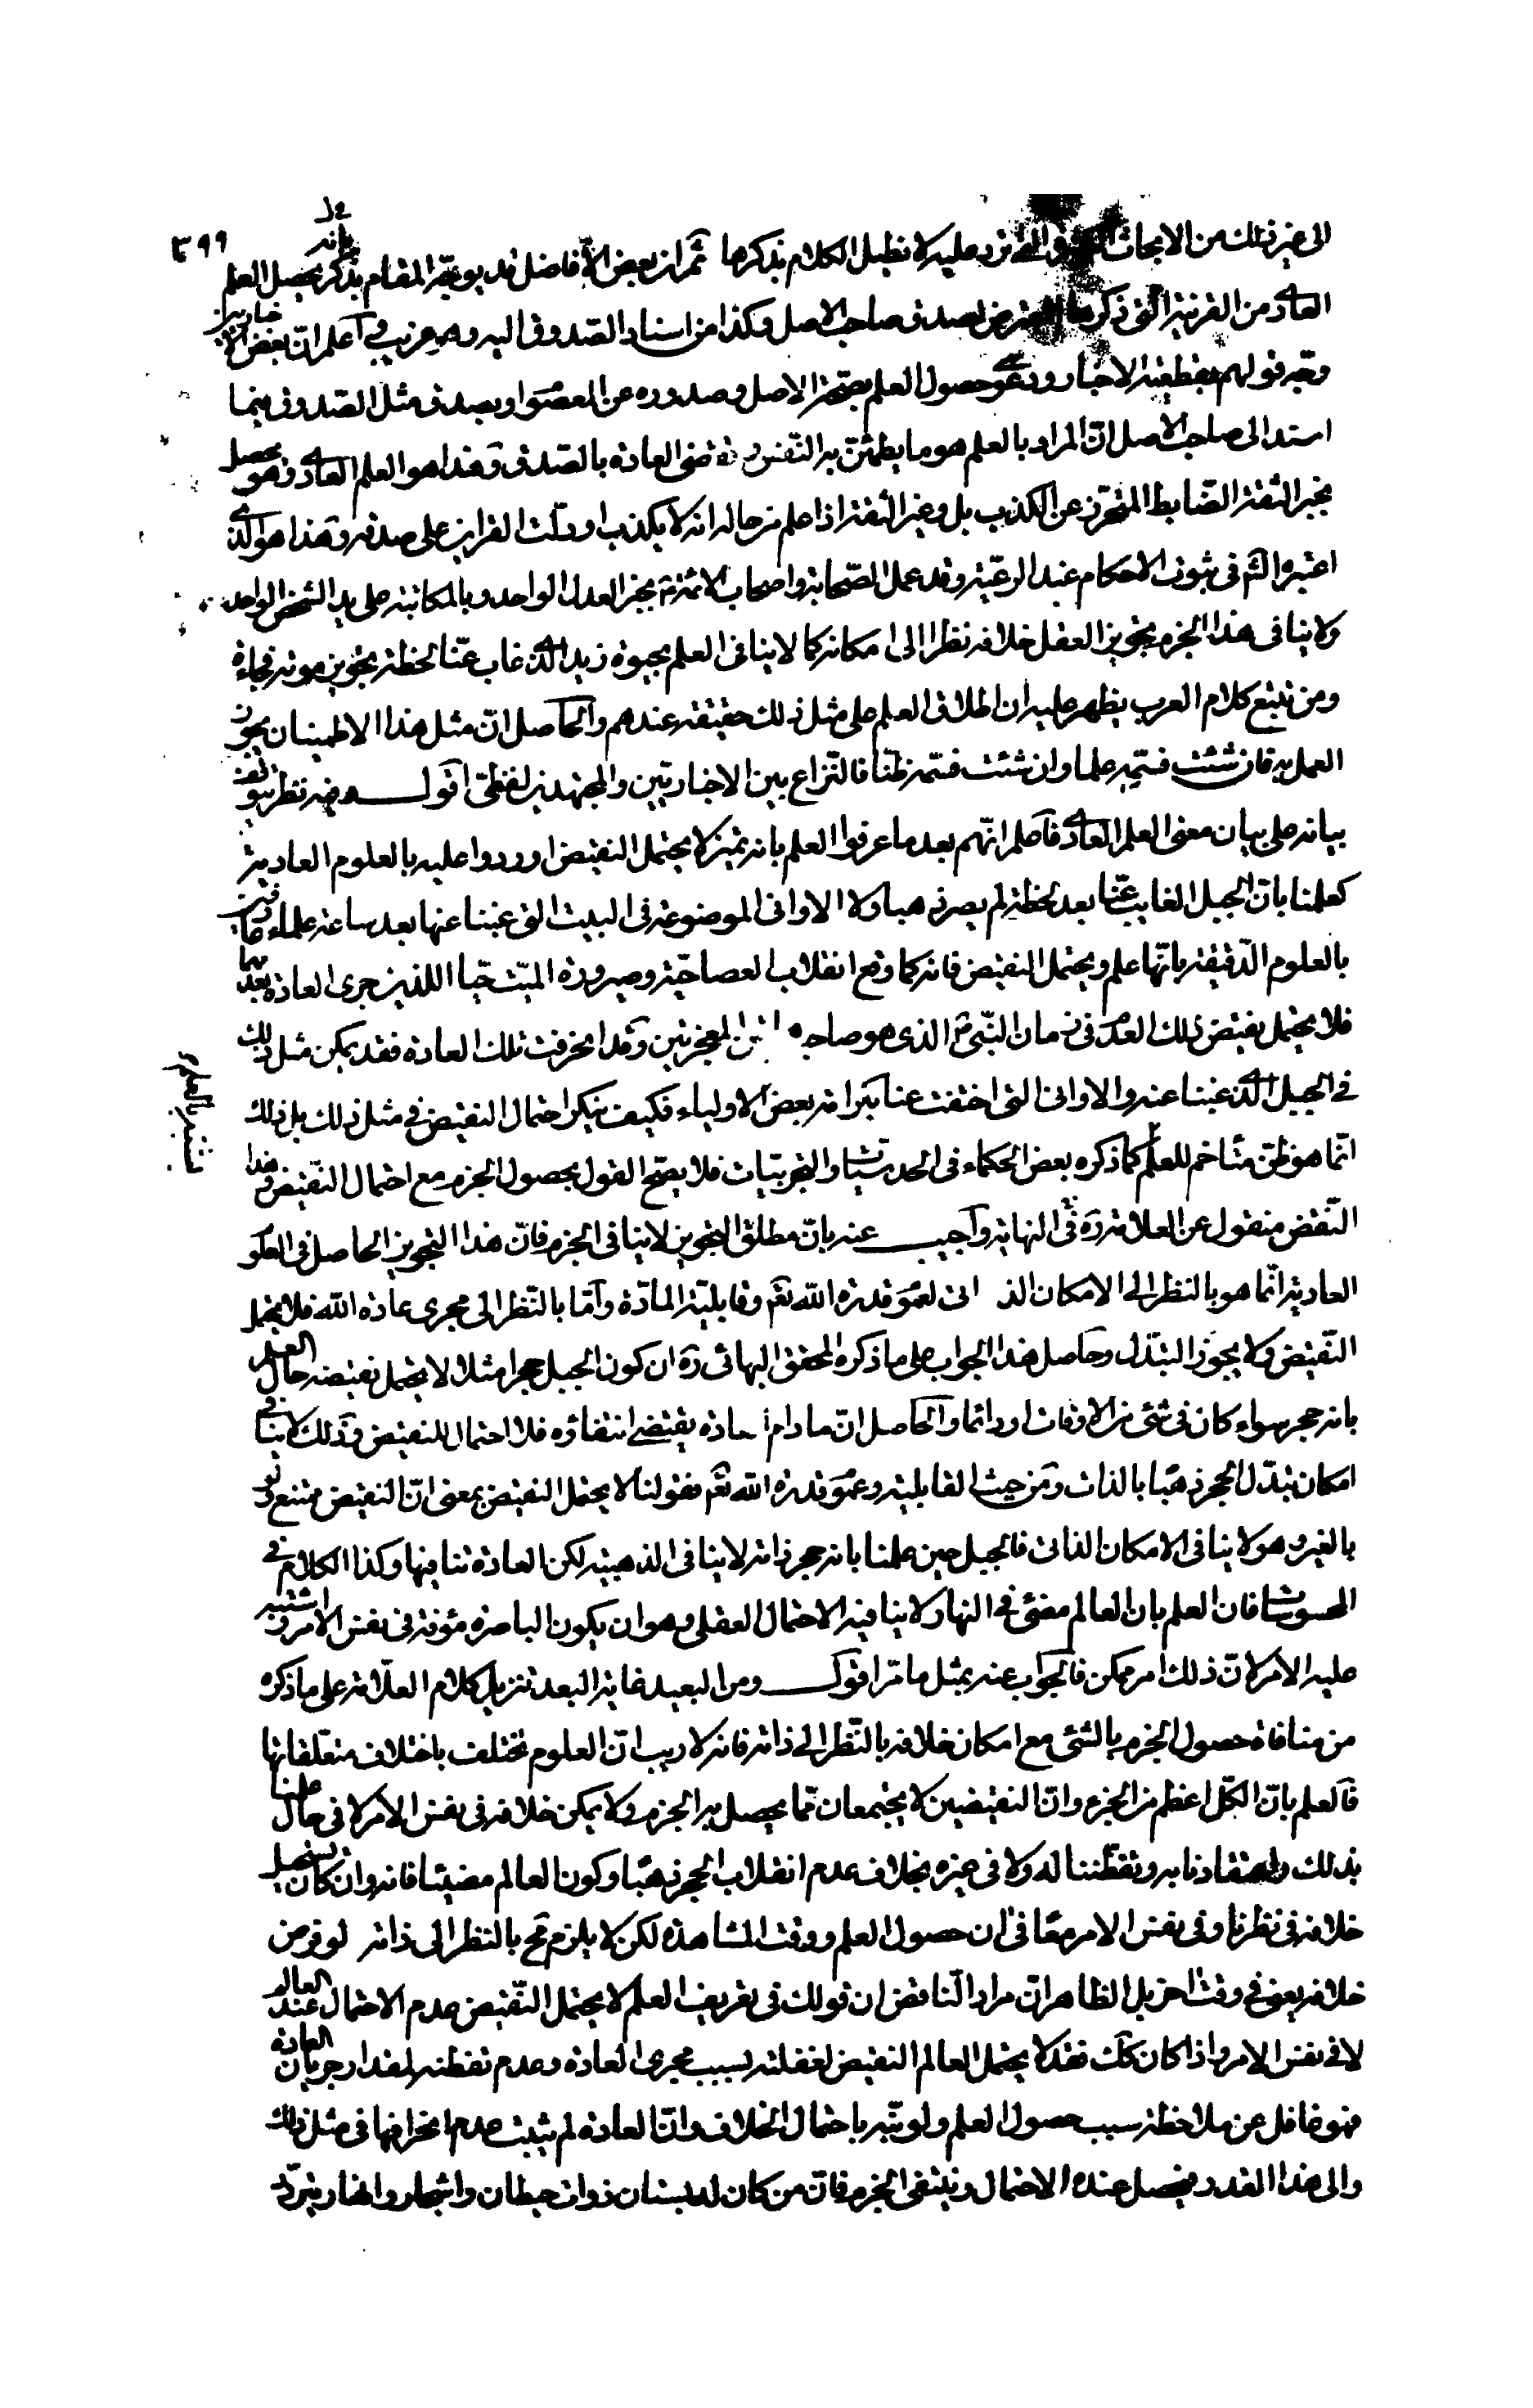 ٣٩٩
الى غير ذلك من الابحاث التى ترد عليه لا نطيل الكلام بذكرها ثم ان بعض الأفاضل قد يوجّه المقام بذكر يحصل العلم
العادى من القرينة التى ذكرها لصدق صاحب الاصل وكذا من اسناد الصّدوق اليه وهو غريب واعلم انّ بعض الاخباريين
وجّه قولهم بقطعيّة الاخبار ودعوى حصول العلم بصحّة الاصل وصدوره عن المعصوم او بصدق مثل الصّدوق فيما
اسند الى صاحب الاصل انّ المراد بالعلم هو ما يطمئنّ به النّفس وتقضى العادة بالصّدق وهذا هو العلم العادى وهو يحصل
بخبر الثقة الضّابط المتحرّز عن الكذب بل وغير الثقة اذا علم من حاله انه لا يكذب او دلّت القراين على صدقه وهذا هو الّذى
اعتبره الشّرع فى ثبوت الاحكام عند الرعيّة وقد عمل الصّحابة واصحاب الائمة بخبر العدل الواحد وبالمكاتبة على يد الشخص الواحد
ولا ينافى هذا الجزم تجويز العقل خلافه نظرا الى امكانه كما لا ينافى العلم بحيوة زيد الّذى غاب عنّا لحظة تجويز موته فجأة
ومن تتبع كلام العرب يظهر عليه ان اطلاق العلم على مثل ذلك حقيقة عندهم والحاصل انّ مثل هذا الاطمينان يجوز
العمل به فان شئت فسمّه علما وان شئت فسمّه ظنّا فالنّزاع بين الاخباريّين والمجتهدين لفظىّ اقول وفيه نظر يتوقف
بيانه على بيان معنى العلم العادى فاعلم انّهم بعد ما عرفوا العلم بانه تميز لا يحتمل النقيض اوردوا عليه بالعلوم العادية
كعلمنا بانّ الجبل الغايب عنّا بعد لحظة لم يصر ذهبا ولا الاوانى الموضوعة فى البيت التى غبنا عنها بعد ساعة علماء عارفين
بالعلوم الدّقيقة بانّها علم ويحتمل النقيض فانه كما وقع انقلاب العصا حيّة وصيرورة الميّت حيّا اللذين جرى العادة بعدمهما
فلا يحتمل نقيض ذلك العدم فى زمان النّبىّ الذى هو صاحب المعجزتين وقد انخرقت تلك العادة فقد يمكن مثل ذلك
فى الجبل الّذى غبنا عنه والاوانى التى اختفت عنا بكرامة بعض الاولياء فكيف ينكر احتمال النقيض فى مثل ذلك بل ذلك
انّما هو ظنّ متاخم للعلم كما ذكره بعض الحكماء فى الحدسيّات والتجربيّات فلا يصحّ القول بحصول الجزم مع احتمال النّقيض وهذا
النّقض منقول عن العلامة ره فى النهاية واجيب عنه بانّ مطلق التجويز لا ينافى الجزم فانّ هذا التجويز الحاصل فى العلوم
العادية انّما هو بالنظر الى الامكان الذاتى لعموم قدرة الله تعم وقابليّة المادّة وامّا بالنّظر الى مجرى عادة الله فلا يحتمل
النّقيض ولا يجوز التبدّل وحاصل هذا الجواب على ما ذكره المحقق البهائى ره ان كون الجبل حجرا مثلا لا يحتمل نقيضه حال العلم
بانه حجر سواء كان فى شئ من الاوقات او دائما والحاصل انّ ما دام العادة يقتضى انتفاؤه فلا احتمال للنقيض وذلك لا ينافى
امكان تبدّل الحجر ذهبا بالذات ومن حيث القابلية وعموم قدرة الله تعم فقولنا لا يحتمل النقيض بمعنى انّ النقيض ممتنع ولو
بالغير وهو لا ينافى الامكان الذاتى فالجبل حين علمنا بانه حجر ذاته لا ينافى الذهبية لكن العادة تنافيها وكذا الكلام فى
المحسوسات فان العلم بان العالم مضئ فى النهار لا ينافيه الاحتمال العقلى وهو ان يكون الباصرة مؤفة فى نفس الامر واشتبه
عليه الامر لانّ ذلك امر ممكن فالجواب عنه بمثل ما مرّ اقول ومن البعيد غاية البعد تنزيل كلام العلّامة على ما ذكره
من منافاة حصول الجزم بالشئ مع امكان خلافه بالنّظر الى ذاته فانه لا ريب انّ العلوم تختلف باختلاف متعلّقاتها
فالعلم بانّ الكلّ اعظم من الجزء وانّ النقيضين لا يجتمعان ممّا يحصل به الجزم ولا يمكن خلافه فى نفس الامر لا فى حال علمنا
بذلك واعتقادنا به وتفطّننا له ولا فى غيره بخلاف عدم انقلاب الحجر ذهبا وكون العالم مضيئا فانه وان كان يستحيل
خلافه فى نظرنا وفى نفس الامر معا فى ان حصول العلم ووقت المشاهدة لكن لا يلزم مح بالنظر الى ذاته لو فرض
خلافه يعنى فى وقت اخر بل الظاهر انّ مراد الناقض ان قولك فى تعريف العلم لا يحتمل النّقيض عدم الاحتمال عند العالم
لا فى نفس الامر واذا كان كك فقد لا يحتمل العالم النقيض لغفلته بسبب مجرى العادة وعدم تفطنه لمقدار جريان العادة
فهو غافل عن ملاحظة سبب حصول العلم ولو نبّه باحتمال الخلاف وانّ العادة لم يثبت عدم انخرافها فى مثل ذلك
والى هذا القدر فيحصل عنده الاحتمال وينتفى الجزم فانّ من كان له بستان ذوات حيطان واشجار وانهار يتردّد